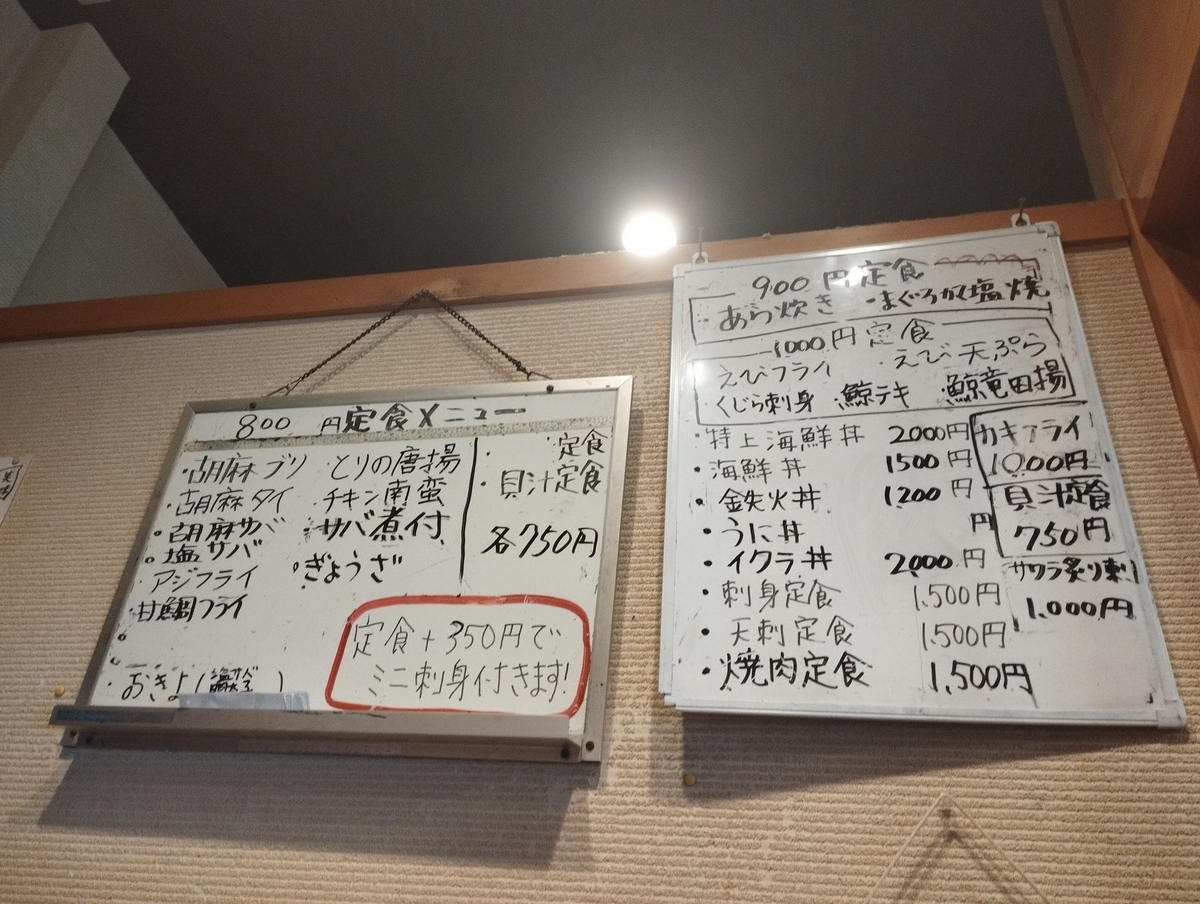 800円定食メニュー
・胡麻ブリ
・胡麻タイ
・胡麻サバ
・塩サバ
・アジフライ
・甘鯛フライ
・おきよ(塩サバ
とりの唐揚
チキン南蛮
・サバ煮付
・ぎょうざ
・定食
・貝汁定食
各750円
定食+350円で
ミニ刺身付きます!
900円定食
・あら炊き ・まぐろかま塩焼
1000円定食
えびフライ ・えび天ぷら
くじら刺身 鯨テキ 鯨竜田揚
・特上海鮮丼 2000円
・海鮮丼 1500円
・鉄火丼 1200円
・うに丼 円
・イクラ丼 2000円
・刺身定食 1,500円
・天刺定食 1,500円
・焼肉定食 1,500円
カキフライ
1000円
貝汁定食
750円
サワラ炙り刺
1,000円